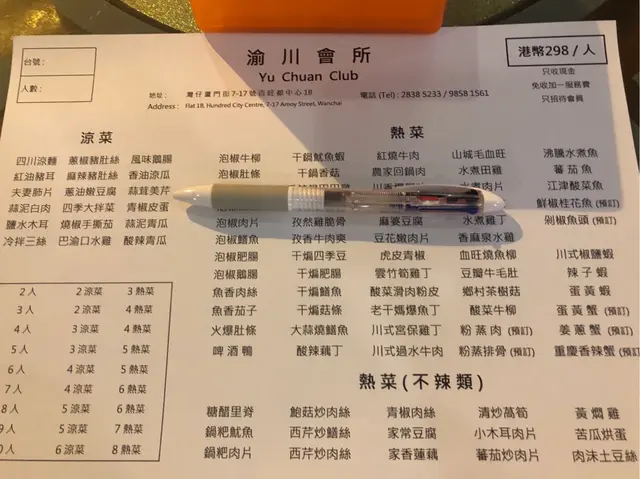 台號：
人數：
渝川會所
Yu Chuan Club
港幣298 / 人
只收現金
免收加一服務費
只招待會員
地址： 灣仔廈門街7-17號百旺都中心1B 電話 (Tel) : 2838 5233 / 9858 1561
Address : Flat 1B, Hundred City Centre, 7-17 Amoy Street, Wanchai
涼菜
四川涼麵 蔥椒豬肚絲 風味鵝腸
紅油豬耳 麻辣豬肚絲 香油涼瓜
夫妻肺片 蔥油嫩豆腐 蒜茸萵芹
蒜泥白肉 四季大拌菜 青椒皮蛋
鹽水木耳 燒椒手撕茄 蒜泥青瓜
冷拌三絲 巴渝口水雞 酸辣青瓜
熱菜
泡椒牛柳 干鍋魷魚蝦 紅燒牛肉 山城毛血旺 沸騰水煮魚
泡椒肚條 干鍋香菇 農家回鍋肉 水煮田雞 蕃茄魚
水煮肉片 江津酸菜魚
鮮椒桂花魚 (預訂)
泡椒肉片 孜然雞脆骨 麻婆豆腐 水煮雞丁 剁椒魚頭 (預訂)
泡椒鱔魚 孜香牛肉爽 豆花嫩肉片 香麻泉水雞
泡椒肥腸 干煸四季豆 虎皮青椒 血旺燒魚柳 川式椒鹽蝦
泡椒鵝腸 干煸肥腸 雲竹筍雞丁 豆瓣牛毛肚 辣子蝦
魚香肉絲 干煸鱔魚 酸菜滑肉粉皮 鄉村茶樹菇 蛋黃蝦
魚香茄子 干煸菇條 老干媽爆魚丁 酸菜牛柳 蛋黃蟹 (預訂)
火爆肚條 大蒜燒鱔魚 川式宮保雞丁 粉蒸肉 (預訂) 姜蔥蟹 (預訂)
啤酒鴨 酸辣藕丁 川式過水牛肉 粉蒸排骨 (預訂) 重慶香辣蟹 (預訂)
2 人 2 涼菜 3 熱菜
3 人 2 涼菜 4 熱菜
4 人 3 涼菜 4 熱菜
5 人 3 涼菜 5 熱菜
6 人 4 涼菜 5 熱菜
7 人 4 涼菜 6 熱菜
8 人 5 涼菜 6 熱菜
9 人 5 涼菜 7 熱菜
0 人 6 涼菜 8 熱菜
熱菜(不辣類)
糖醋里脊 鮑菇炒肉絲 青椒肉絲 清炒萵筍 黃燜雞
鍋粑魷魚 西芹炒鱔絲 家常豆腐 小木耳肉片 苦瓜烘蛋
鍋粑肉片 西芹炒肉絲 家香蓮藕 蕃茄炒肉片 肉沫土豆絲